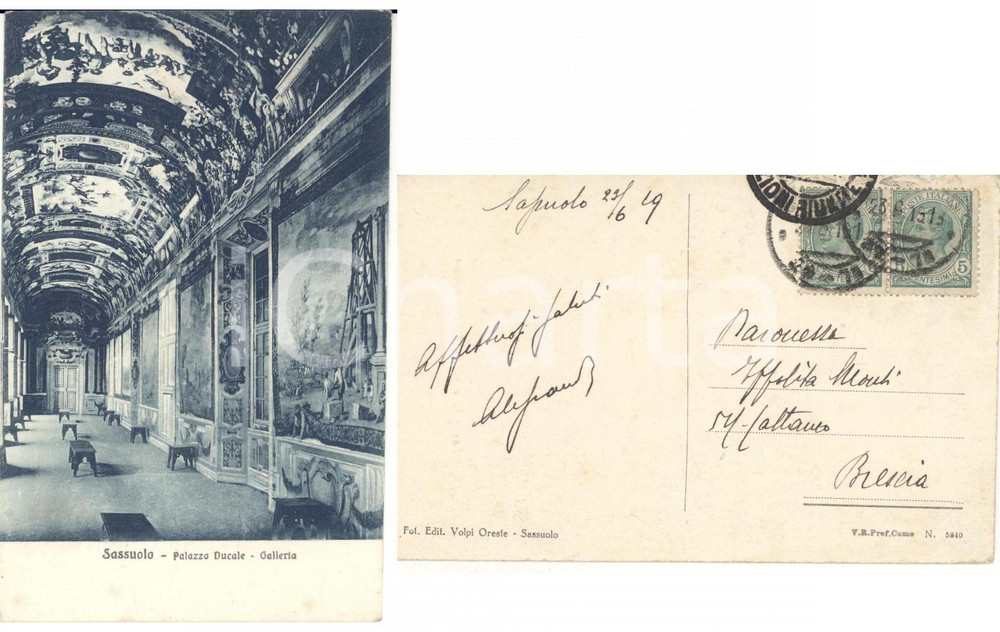 Sassuolo - Palazzo Ducale - Galleria
Sassuolo 23/6 19
Affettuosi Saluti
Baronessa
Ippolita Monti
54 Cattaneo
Brescia
23.6.19
5
CENTESIMI
Fot. Edit. Volpi Oreste - Sassuolo
V.R.Pref.Como N. 5840
Charta